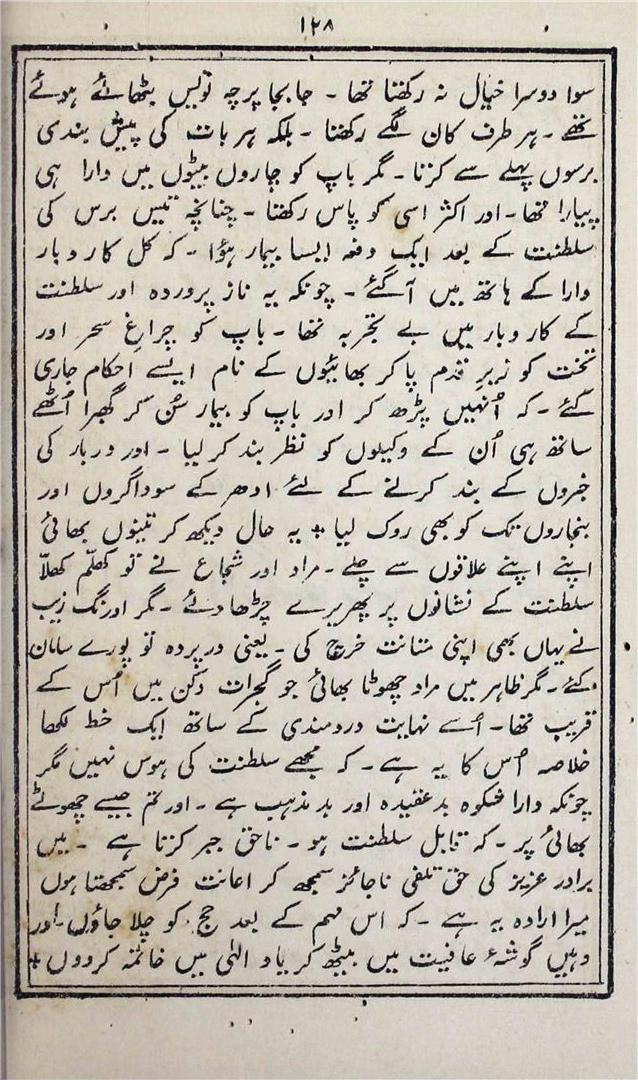 ۱۲۸
سوا دوسرا خیال نہ رکھتا تھا ۔ جا بجا پرچہ نویس بٹھائے ہوئے
تھے ۔ ہر طرف کان لگے رکھتا ۔ بلکہ ہر بات کی پیش بندی
برسوں پہلے سے کرتا ۔ مگر باپ کو چاروں بیٹوں میں دارا ہی
پیارا تھا ۔ اور اکثر اسی کو پاس رکھتا ۔ چنانچہ تیس برس کی
سلطنت کے بعد ایک دفعہ ایسا بیمار ہؤا ۔ کہ کل کار و بار
دارا کے ہاتھ میں آ گئے ۔ چونکہ یہ ناز پروردہ اور سلطنت
کے کار و بار میں بے تجربہ تھا ۔ باپ کو چراغِ سحر اور
تخت کو زیرِ قدم پا کر بھائیوں کے نام ایسے احکام جاری
کئے ۔ کہ اُنہیں پڑھ کر اور باپ کو بیمار سُن کر گھبرا اُٹھے
ساتھ ہی اُن کے وکیلوں کو نظر بند کر لیا ۔ اور دربار کی
خبروں کے بند کرنے کے لئے ادھر کے سوداگروں اور
بنجاروں تک کو بھی روک لیا + یہ حال دیکھ کر تینوں بھائی
اپنے اپنے علاقوں سے چلے ۔ مراد اور شجاع نے تو کھلّم کھلّا
سلطنت کے نشانوں پر پھریرے چڑھا دئے ۔ مگر اورنگ زیب
نے یہاں بھی اپنی متانت خرچ کی ۔ یعنی در پردہ تو پورے سامان
کئے ۔ مگر ظاہر میں مراد چھوٹا بھائی جو گجرات دکن میں اُس کے
قریب تھا ۔ اُسے نہایت دردمندی کے ساتھ ایک خط لکھا
خلاصہ اُس کا یہ ہے ۔ کہ مجھے سلطنت کی ہوس نہیں مگر
چونکہ دارا شکوہ بد عقیدہ اور بد مذہب ہے ۔ اور تم جیسے چھوٹے
بھائی پر ۔ کہ قابل سلطنت ہو ۔ ناحق جبر کرتا ہے ۔ میں
برادر عزیز کی حق تلفی ناجائز سمجھ کر اعانت فرض سمجھتا ہوں
میرا ارادہ یہ ہے ۔ کہ اس مہم کے بعد حج کو چلا جاؤں ۔ اور
وہیں گوشۂ عافیت میں بیٹھ کر یاد الٰہی میں خاتمہ کر دوں +